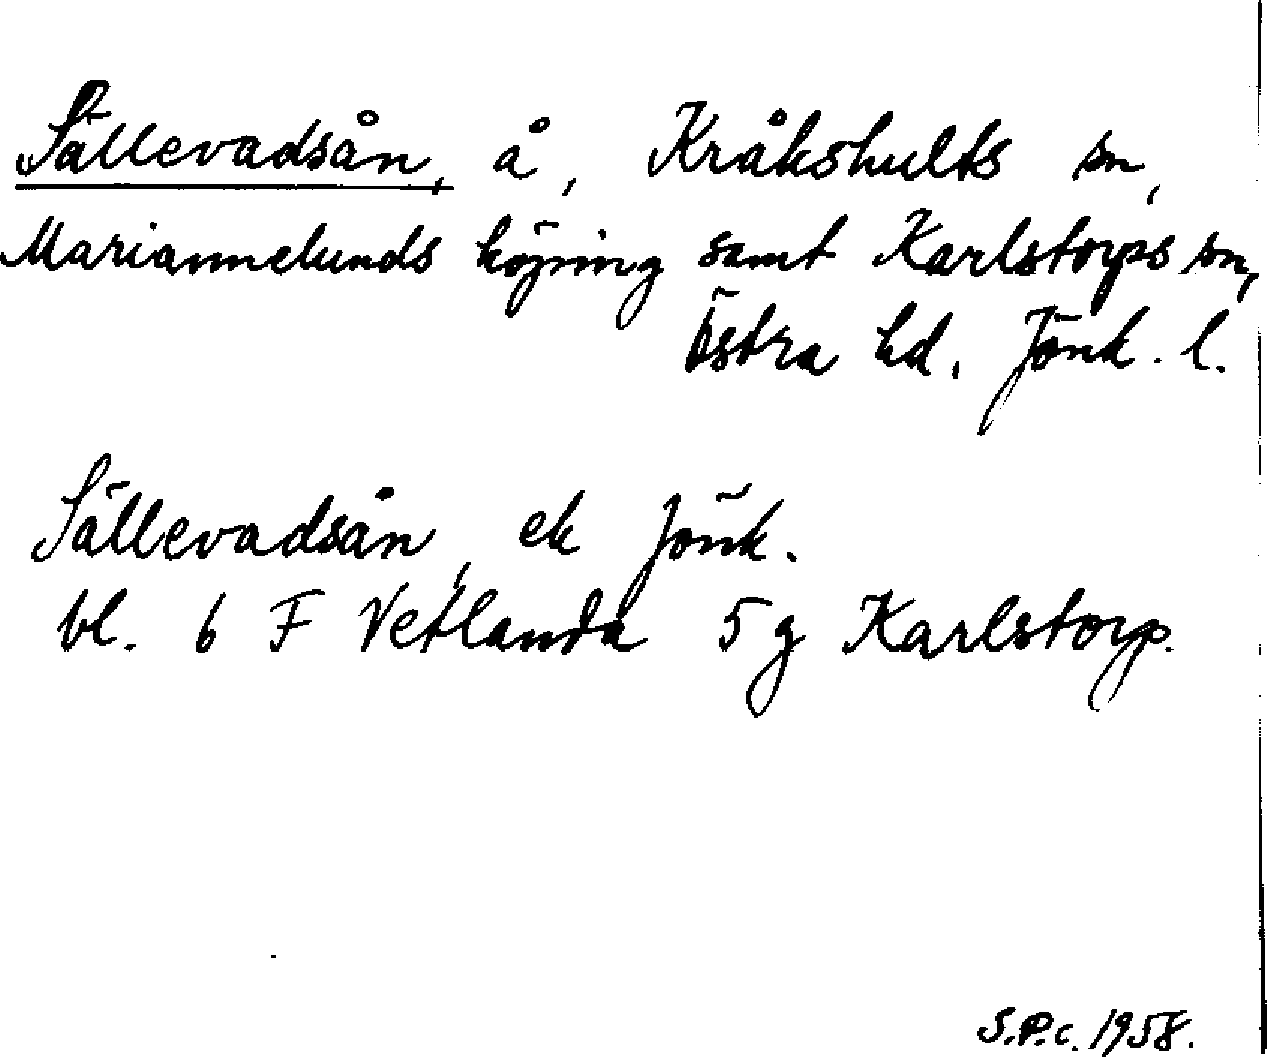 Sällevadsån, å, Kråkshults sn,
Mariannelunds köping samt Karlstorps sn,
Östra hd, Jönk. l.
Sällevadsån, ek Jönk.
bl. 6 F Vetlanda 5 g Karlstorp.
S.P.c. 1958.